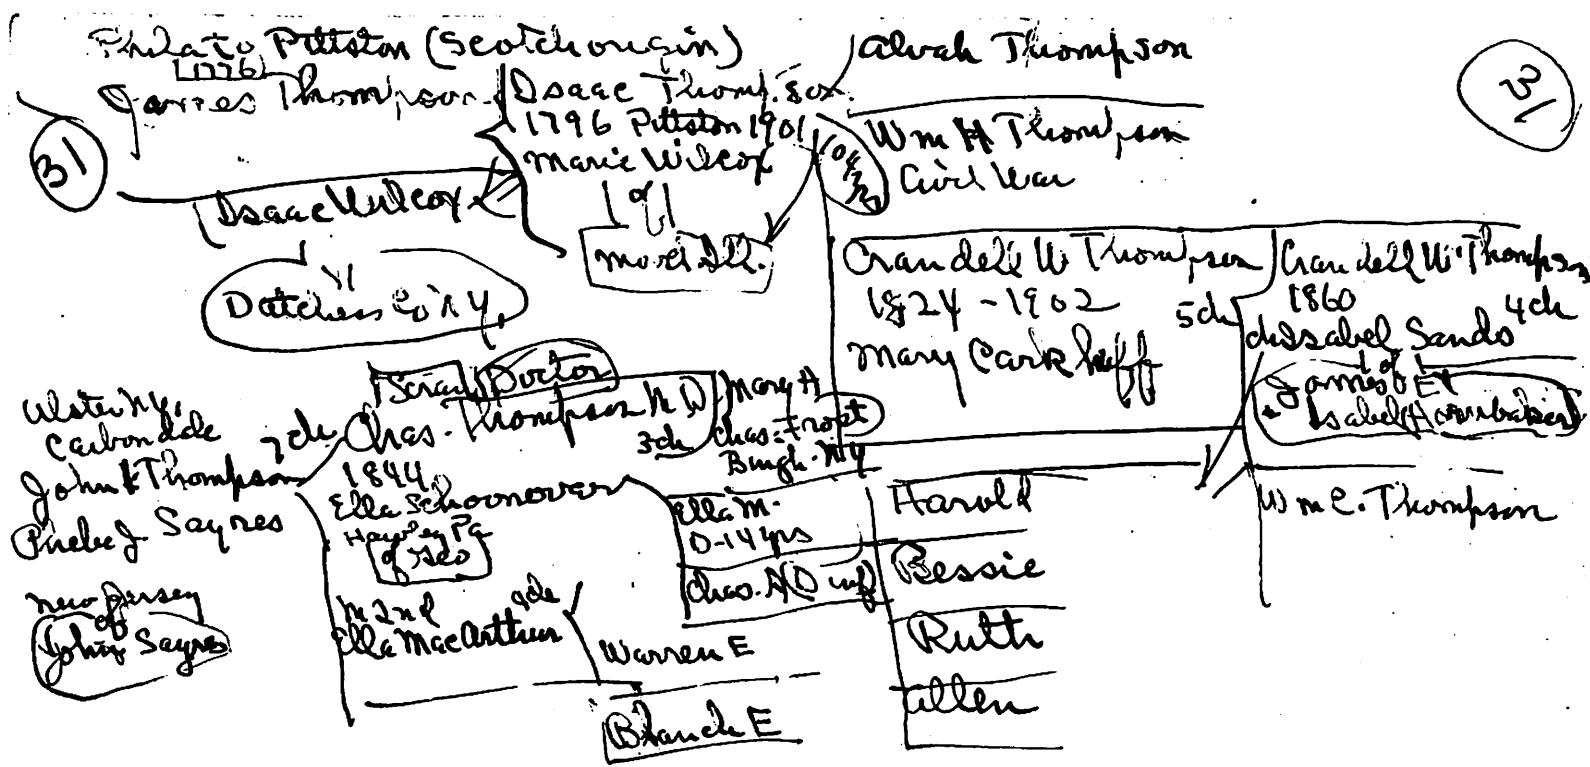 Phila to Pittston (Scotch origin)
1776
James Thompson
31
Isaac Thompson
1796 Pittston 1901
Marie Wilcox
of
moved Ill.
Isaac Wilcox
Dutchess Co N Y,
Alvah Thompson
31
Wm H Thompson
Civil War
Crandell W Thompson
1824 - 1902
5 ch
Mary Carkhuff
Crandell W. Thompson
1860
4 ch
Isabel Sands
of
James E
Isabel Hornbaker
Wm C. Thompson
Harold
Bessie
Ruth
Allen
Ulster N.Y.
Carbondale
7 ch
John Thompson
Phebe J Sayres
New Jersey
of
John Sayres
Scran Doctor
Chas. Thompson M D
3 ch
1844
Ella Schoonover
Hawley Pa
of Geo
M 2nd
2 ch
Ella MacArthur
Mary A
Chas. Frost
Bingh. NY
Ella M.
D-14 yrs
Chas. A D inf
Warren E
Blanch E